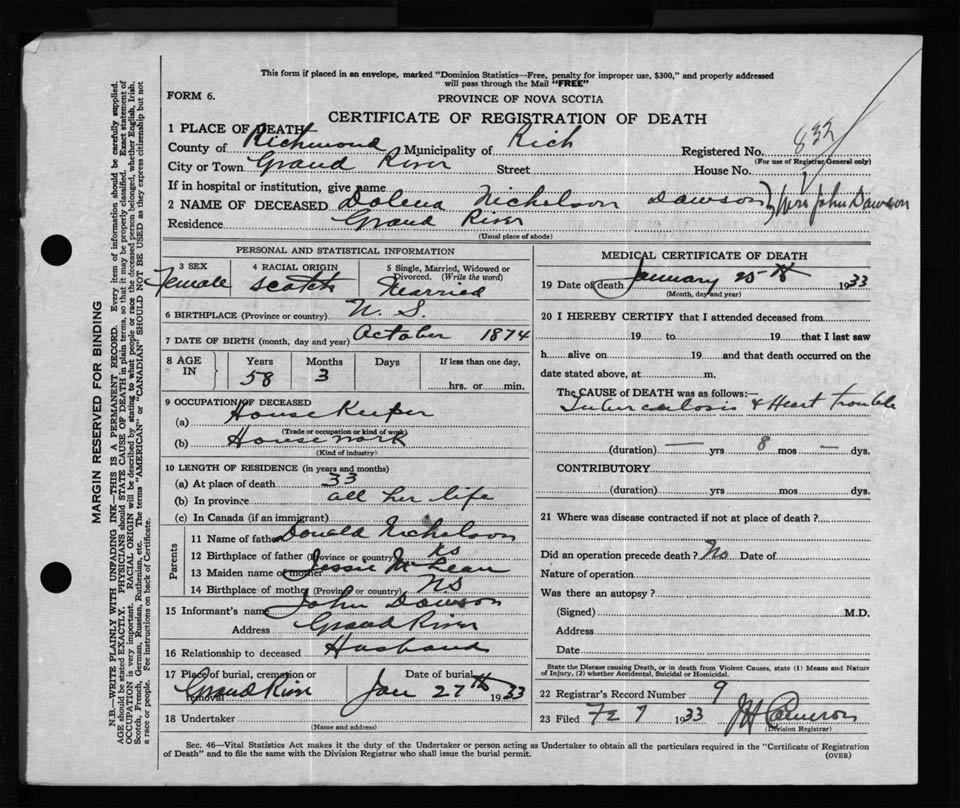 This form if placed in an envelope, marked "Dominion Statistics—Free, penalty for improper use, $300," and properly addressed
will pass through the Mail "FREE"
FORM 6.
PROVINCE OF NOVA SCOTIA
CERTIFICATE OF REGISTRATION OF DEATH
1 PLACE OF DEATH
County of Richmond Municipality of Rich Registered No. 832
(For use of Registrar General only)
City or Town Grand River Street House No.
If in hospital or institution, give name
2 NAME OF DECEASED Dolena Nicholson Dawson Mrs John Dawson
Residence Grand River
(Usual place of abode)
PERSONAL AND STATISTICAL INFORMATION
3 SEX Female
4 RACIAL ORIGIN Scotch
5 Single, Married, Widowed or Divorced. (Write the word) Married
6 BIRTHPLACE (Province or country) N. S.
7 DATE OF BIRTH (month, day and year) October 1874
8 AGE IN Years 58 Months 3 Days If less than one day, hrs. or min.
9 OCCUPATION OF DECEASED
(a) House Keeper
(Trade or occupation or kind of work)
(b) House work
(Kind of industry)
10 LENGTH OF RESIDENCE (in years and months)
(a) At place of death 33
(b) In province all her life
(c) In Canada (if an immigrant)
Parents
11 Name of father Donald Nicholson
12 Birthplace of father (Province or country)
13 Maiden name of mother Jessie McLean
14 Birthplace of mother (Province or country) N.S
15 Informant's name John Dawson
Address Grand River
16 Relationship to deceased Husband
17 Place of burial, cremation or removal Grand River
Date of burial Jan 27th 1933
18 Undertaker
(Name and address)
MEDICAL CERTIFICATE OF DEATH
19 Date of death January 25th 1933
(Month, day and year)
20 I HEREBY CERTIFY that I attended deceased from
19 to 19 that I last saw
h alive on 19 and that death occurred on the
date stated above, at m.
The CAUSE OF DEATH was as follows:—
Tuberculosis & Heart trouble
(duration) — yrs 8 mos — dys.
CONTRIBUTORY
(duration) yrs mos dys.
21 Where was disease contracted if not at place of death?
Did an operation precede death? No Date of
Nature of operation
Was there an autopsy?
(Signed) M.D.
Address
Date
State the Disease causing Death, or in death from Violent Causes, state (1) Means and Nature
of Injury, (2) whether Accidental, Suicidal or Homicidal.
22 Registrar's Record Number 9
23 Filed 7 1933 Cameron
(Division Registrar)
Sec. 46—Vital Statistics Act makes it the duty of the Undertaker or person acting as Undertaker to obtain all the particulars required in the "Certificate of Registration
of Death" and to file the same with the Division Registrar who shall issue the burial permit.
(OVER)
MARGIN RESERVED FOR BINDING
N.B.—WRITE PLAINLY WITH UNFADING INK—THIS IS A PERMANENT RECORD. Every item of information should be carefully supplied.
AGE should be stated EXACTLY. PHYSICIANS should STATE CAUSE OF DEATH in plain terms, so that it may be properly classified. Exact statement of
OCCUPATION is very important. RACIAL ORIGIN will be described by stating to what people or race the deceased person belonged, whether English, Irish,
Scotch, French, German, Russian, Ruthenian, etc. The terms "AMERICAN" or "CANADIAN" SHOULD NOT BE USED as they express citizenship but not
a race or people. See instructions on back of Certificate.